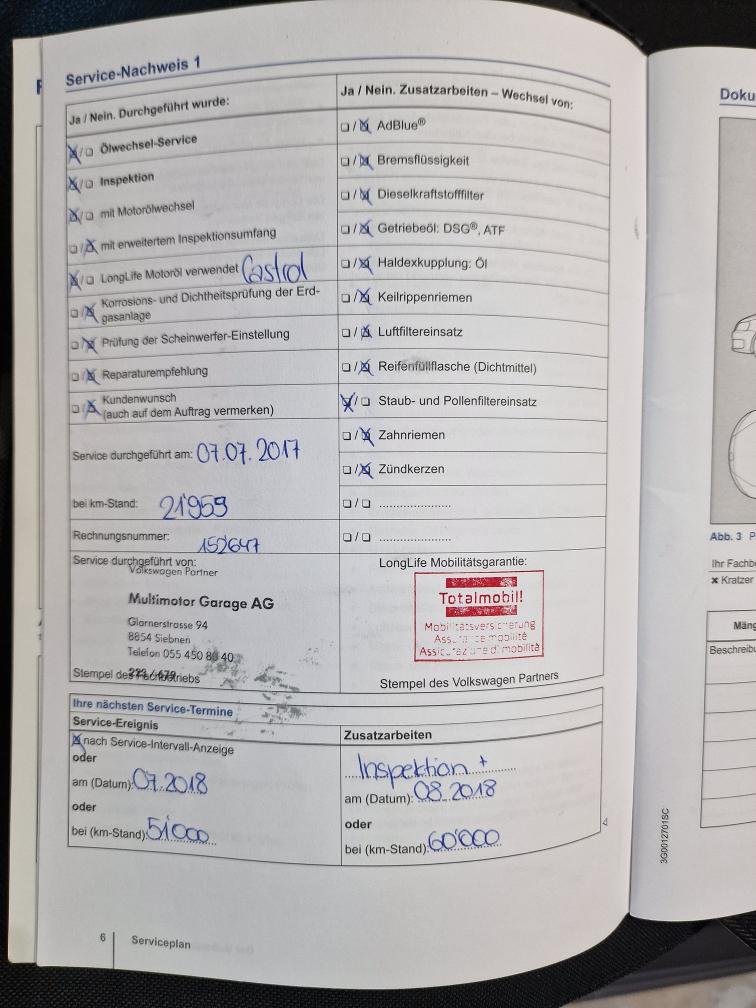 Service-Nachweis 1
Ja / Nein. Durchgeführt wurde:
☒/❏ Ölwechsel-Service
☒/❏ Inspektion
☒/❏ mit Motorölwechsel
❏/☒ mit erweitertem Inspektionsumfang
☒/❏ LongLife Motoröl verwendet Castrol
❏/☒ Korrosions- und Dichtheitsprüfung der Erd-
gasanlage
❏/☒ Prüfung der Scheinwerfer-Einstellung
❏/☒ Reparaturempfehlung
❏/☒ Kundenwunsch
(auch auf dem Auftrag vermerken)
Service durchgeführt am: 07.07.2017
bei km-Stand: 21'959
Rechnungsnummer: 152647
Service durchgeführt von:
Volkswagen Partner
Multimotor Garage AG
Glarnerstrasse 94
8854 Siebnen
Telefon 055 450 80 40
Stempel des Fachbetriebs
Ja / Nein. Zusatzarbeiten – Wechsel von:
❏/☒ AdBlue®
❏/☒ Bremsflüssigkeit
❏/☒ Dieselkraftstofffilter
❏/☒ Getriebeöl: DSG®, ATF
❏/☒ Haldexkupplung: Öl
❏/☒ Keilrippenriemen
❏/☒ Luftfiltereinsatz
❏/☒ Reifenfüllflasche (Dichtmittel)
☒/❏ Staub- und Pollenfiltereinsatz
❏/☒ Zahnriemen
❏/☒ Zündkerzen
❏/❏ .....................
❏/❏ .....................
LongLife Mobilitätsgarantie:
Totalmobil!
Mobilitätsversicherung
Assurance mobilité
Assicurazione di mobilità
Stempel des Volkswagen Partners
Ihre nächsten Service-Termine
Service-Ereignis
☒ nach Service-Intervall-Anzeige
oder
am (Datum): 07.2018
oder
bei (km-Stand): 51'000
Zusatzarbeiten
Inspektion +
am (Datum): 08.2018
oder
bei (km-Stand): 60'000
6 Serviceplan
Doku
Abb. 3 P
Ihr Fachbe
× Kratzer
Mäng
Beschreibu
3G0012701SC